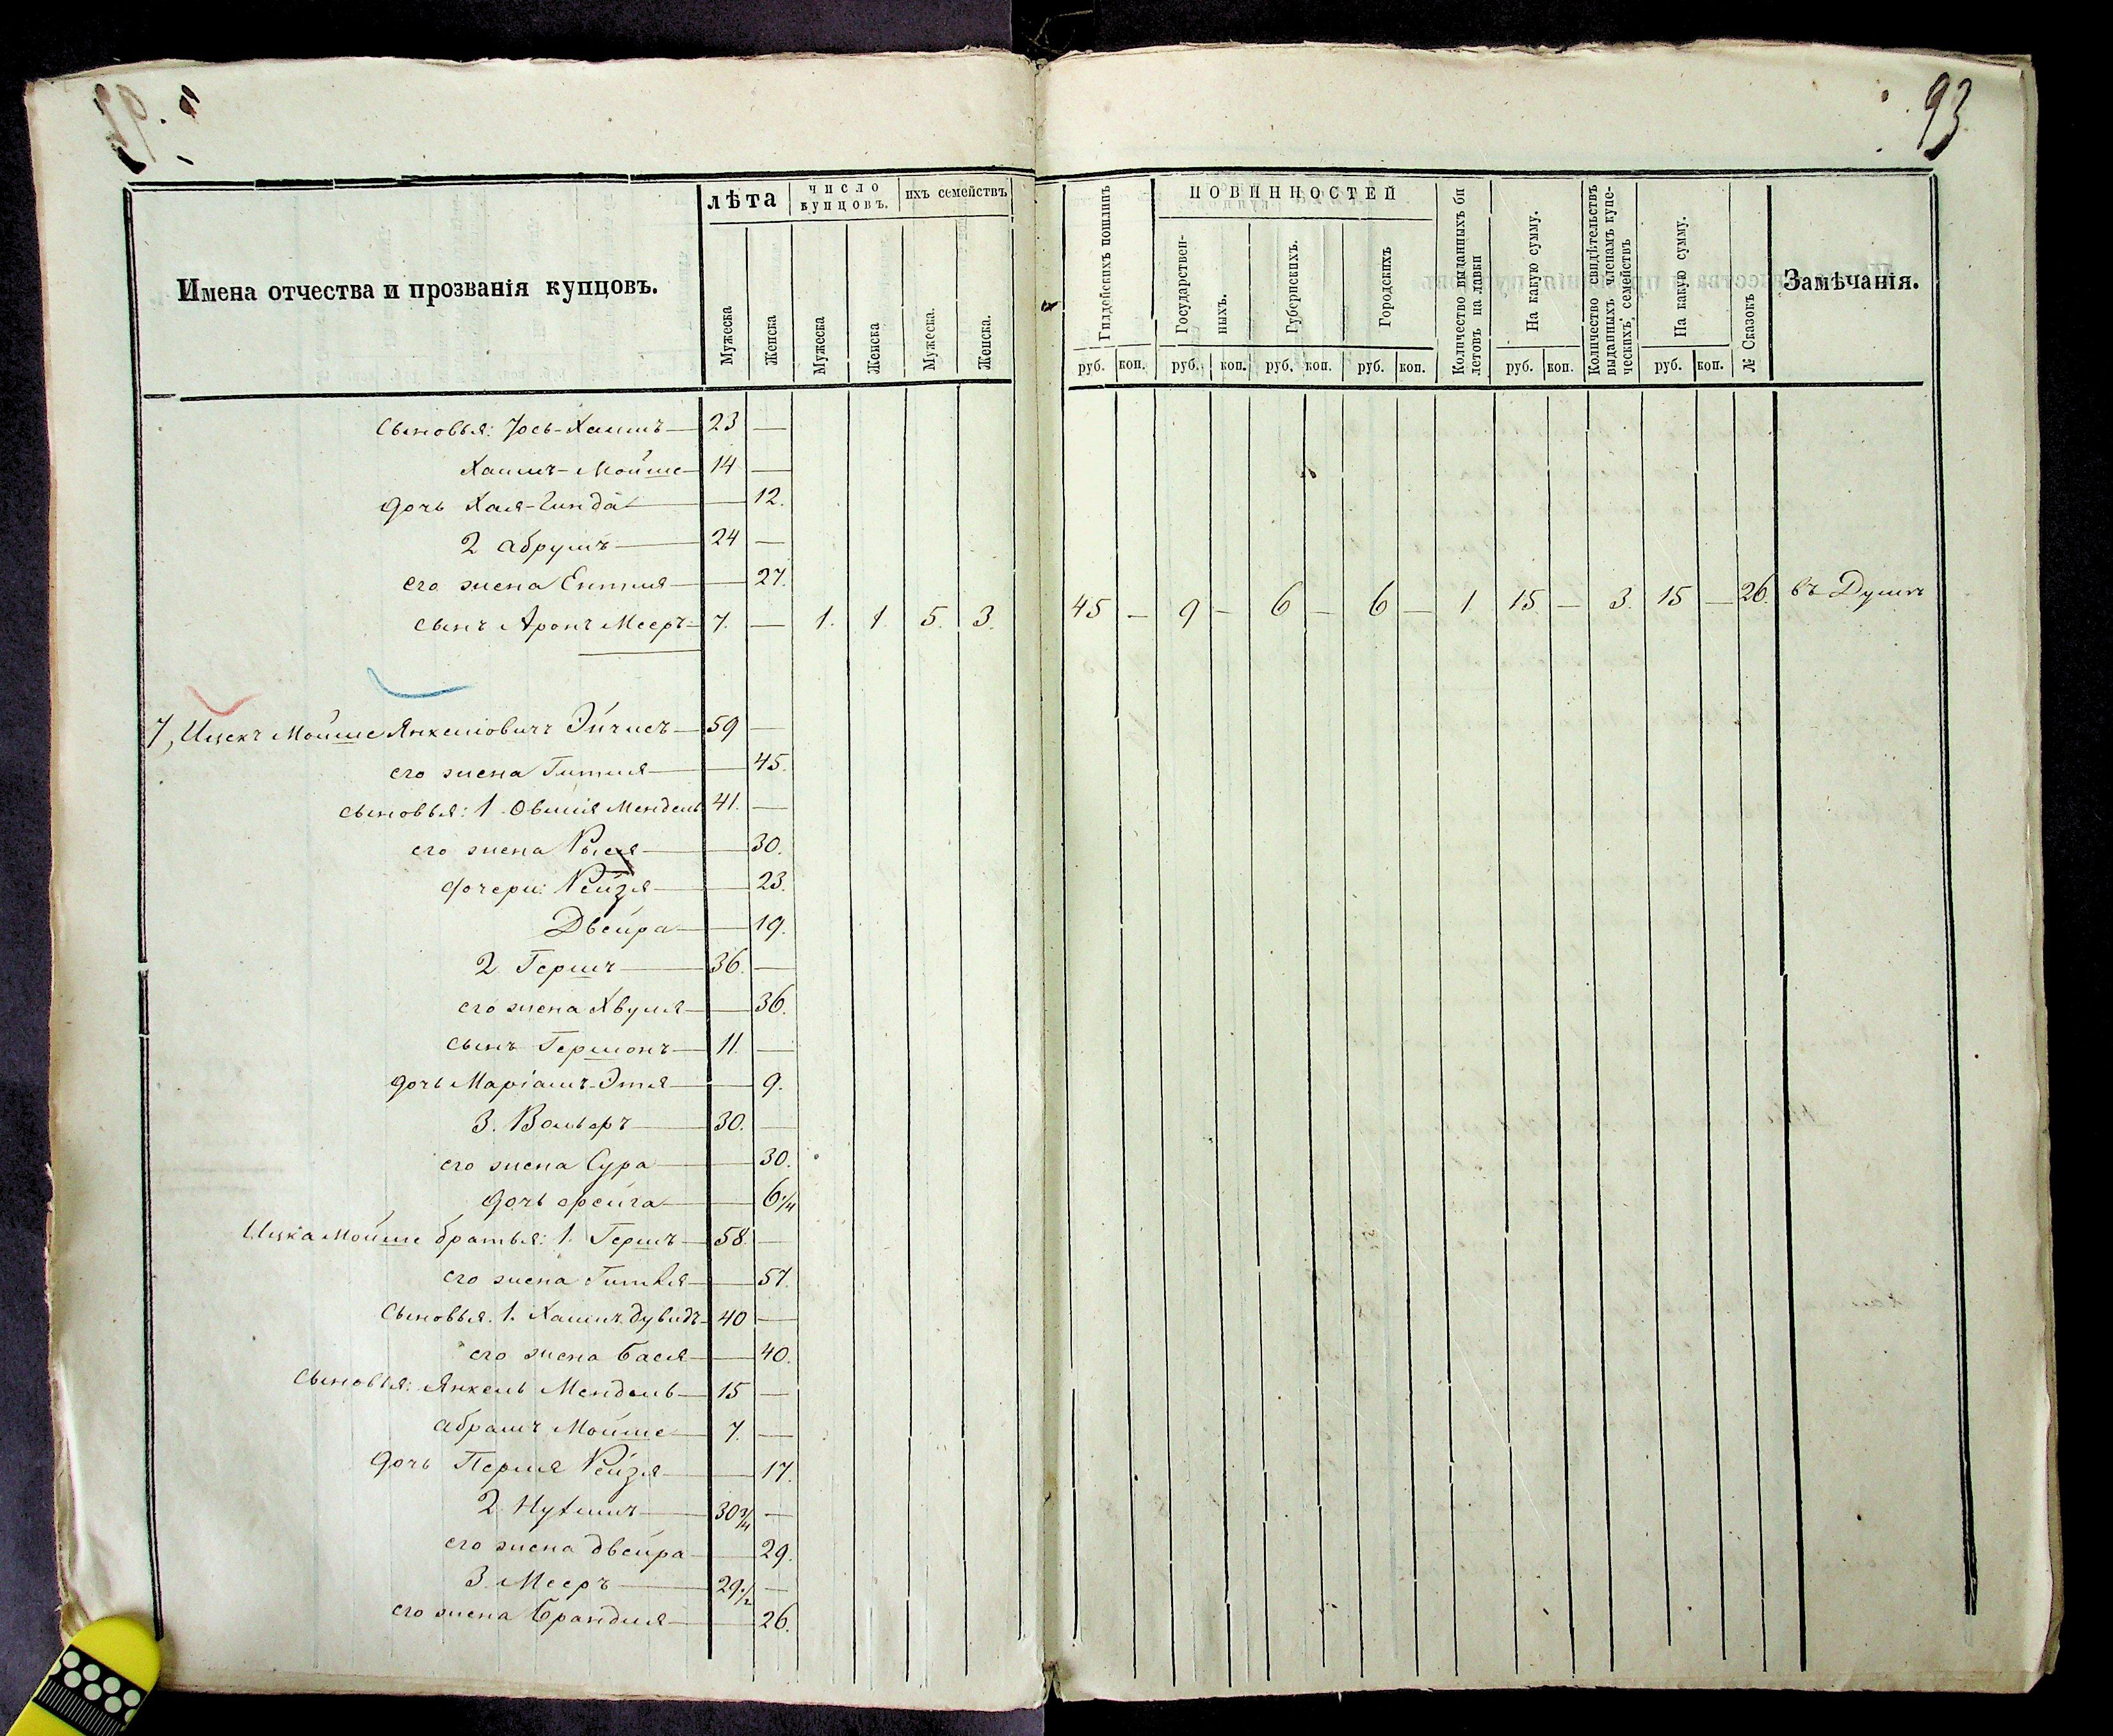 93
Имена отчества и прозванія купцовъ.
лѣта
число купцовъ.
ихъ семействъ
Мужеска
Женска
Мужеска
Женска
Мужеска.
Женска.
Гилдейскихъ пошлинъ
ПОВИННОСТЕЙ
Государственныхъ.
Губернскихъ.
Городскихъ
Количество выданныхъ билетовъ на лавки
На какую сумму.
Количество свидѣтельствъ выданныхъ членамъ купеческихъ семействъ
На какую сумму.
№ Сказокъ
Замѣчанія.
руб. коп. руб. коп. руб. коп. руб. коп. руб. коп. руб. коп.
Сыновья: Іось-Хаимъ — 23 —
Хаимъ-Мойше — 14 —
дочь Хая-Гинда — 12.
2 Абрумъ — 24 —
его жена Ентля — 27.
сынъ Аронъ Мееръ — 7. — 1. 1. 5. 3. 45 — 9 — 6 — 6 — 1. 15 — 3. 15 — 26. въ Думѣ
7, Ицекъ Мойше Янкеліовичъ Эйчисъ — 59 —
его жена Гитля — 45.
сыновья: 1. Овшія Мендель 41. —
его жена Рысля — 30.
дочери: Рейзя — 23.
Двейра — 19.
2 Гершъ — 36. —
его жена Хвуля — 36.
сынъ Гершонъ — 11. —
дочь Маріамъ-Этля — 9.
3. Вольфъ — 30. —
его жена Сура — 30.
дочь Фейга — 6 1/4
Ицка Мойше братья: 1. Гершъ — 58. —
его жена Гитля — 57.
Сыновья. 1. Хаимъ Дувидъ — 40 —
его жена Бася — 40.
Сыновья: Янкель Мендель — 15 —
Абрамъ Мойше — 7. —
дочь Перля Рейзя — 17.
2 Нухимъ — 30 3/4 —
его жена Двейра — 29.
3. Мееръ — 29 1/2 —
его жена Брандля — 26.